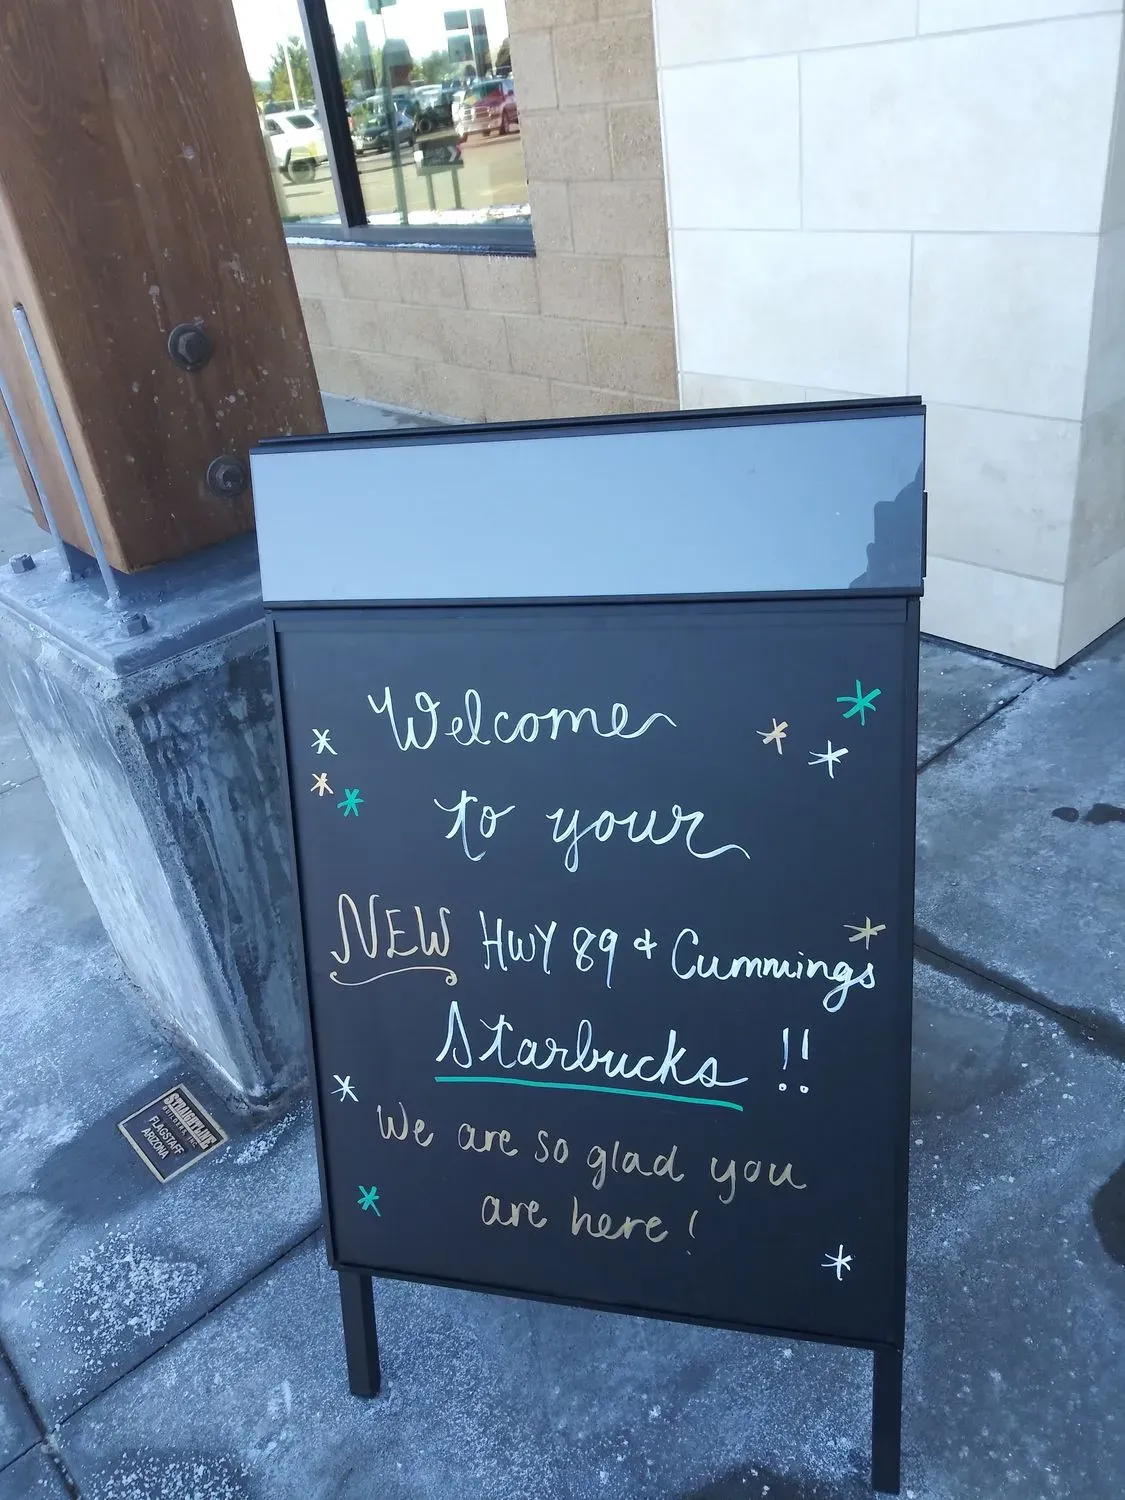 Welcome
to your
NEW HWY 89 & Cummings
Starbucks !!
We are so glad you
are here!
STRAIGHTLINE
BUILDERS INC.
FLAGSTAFF
ARIZONA